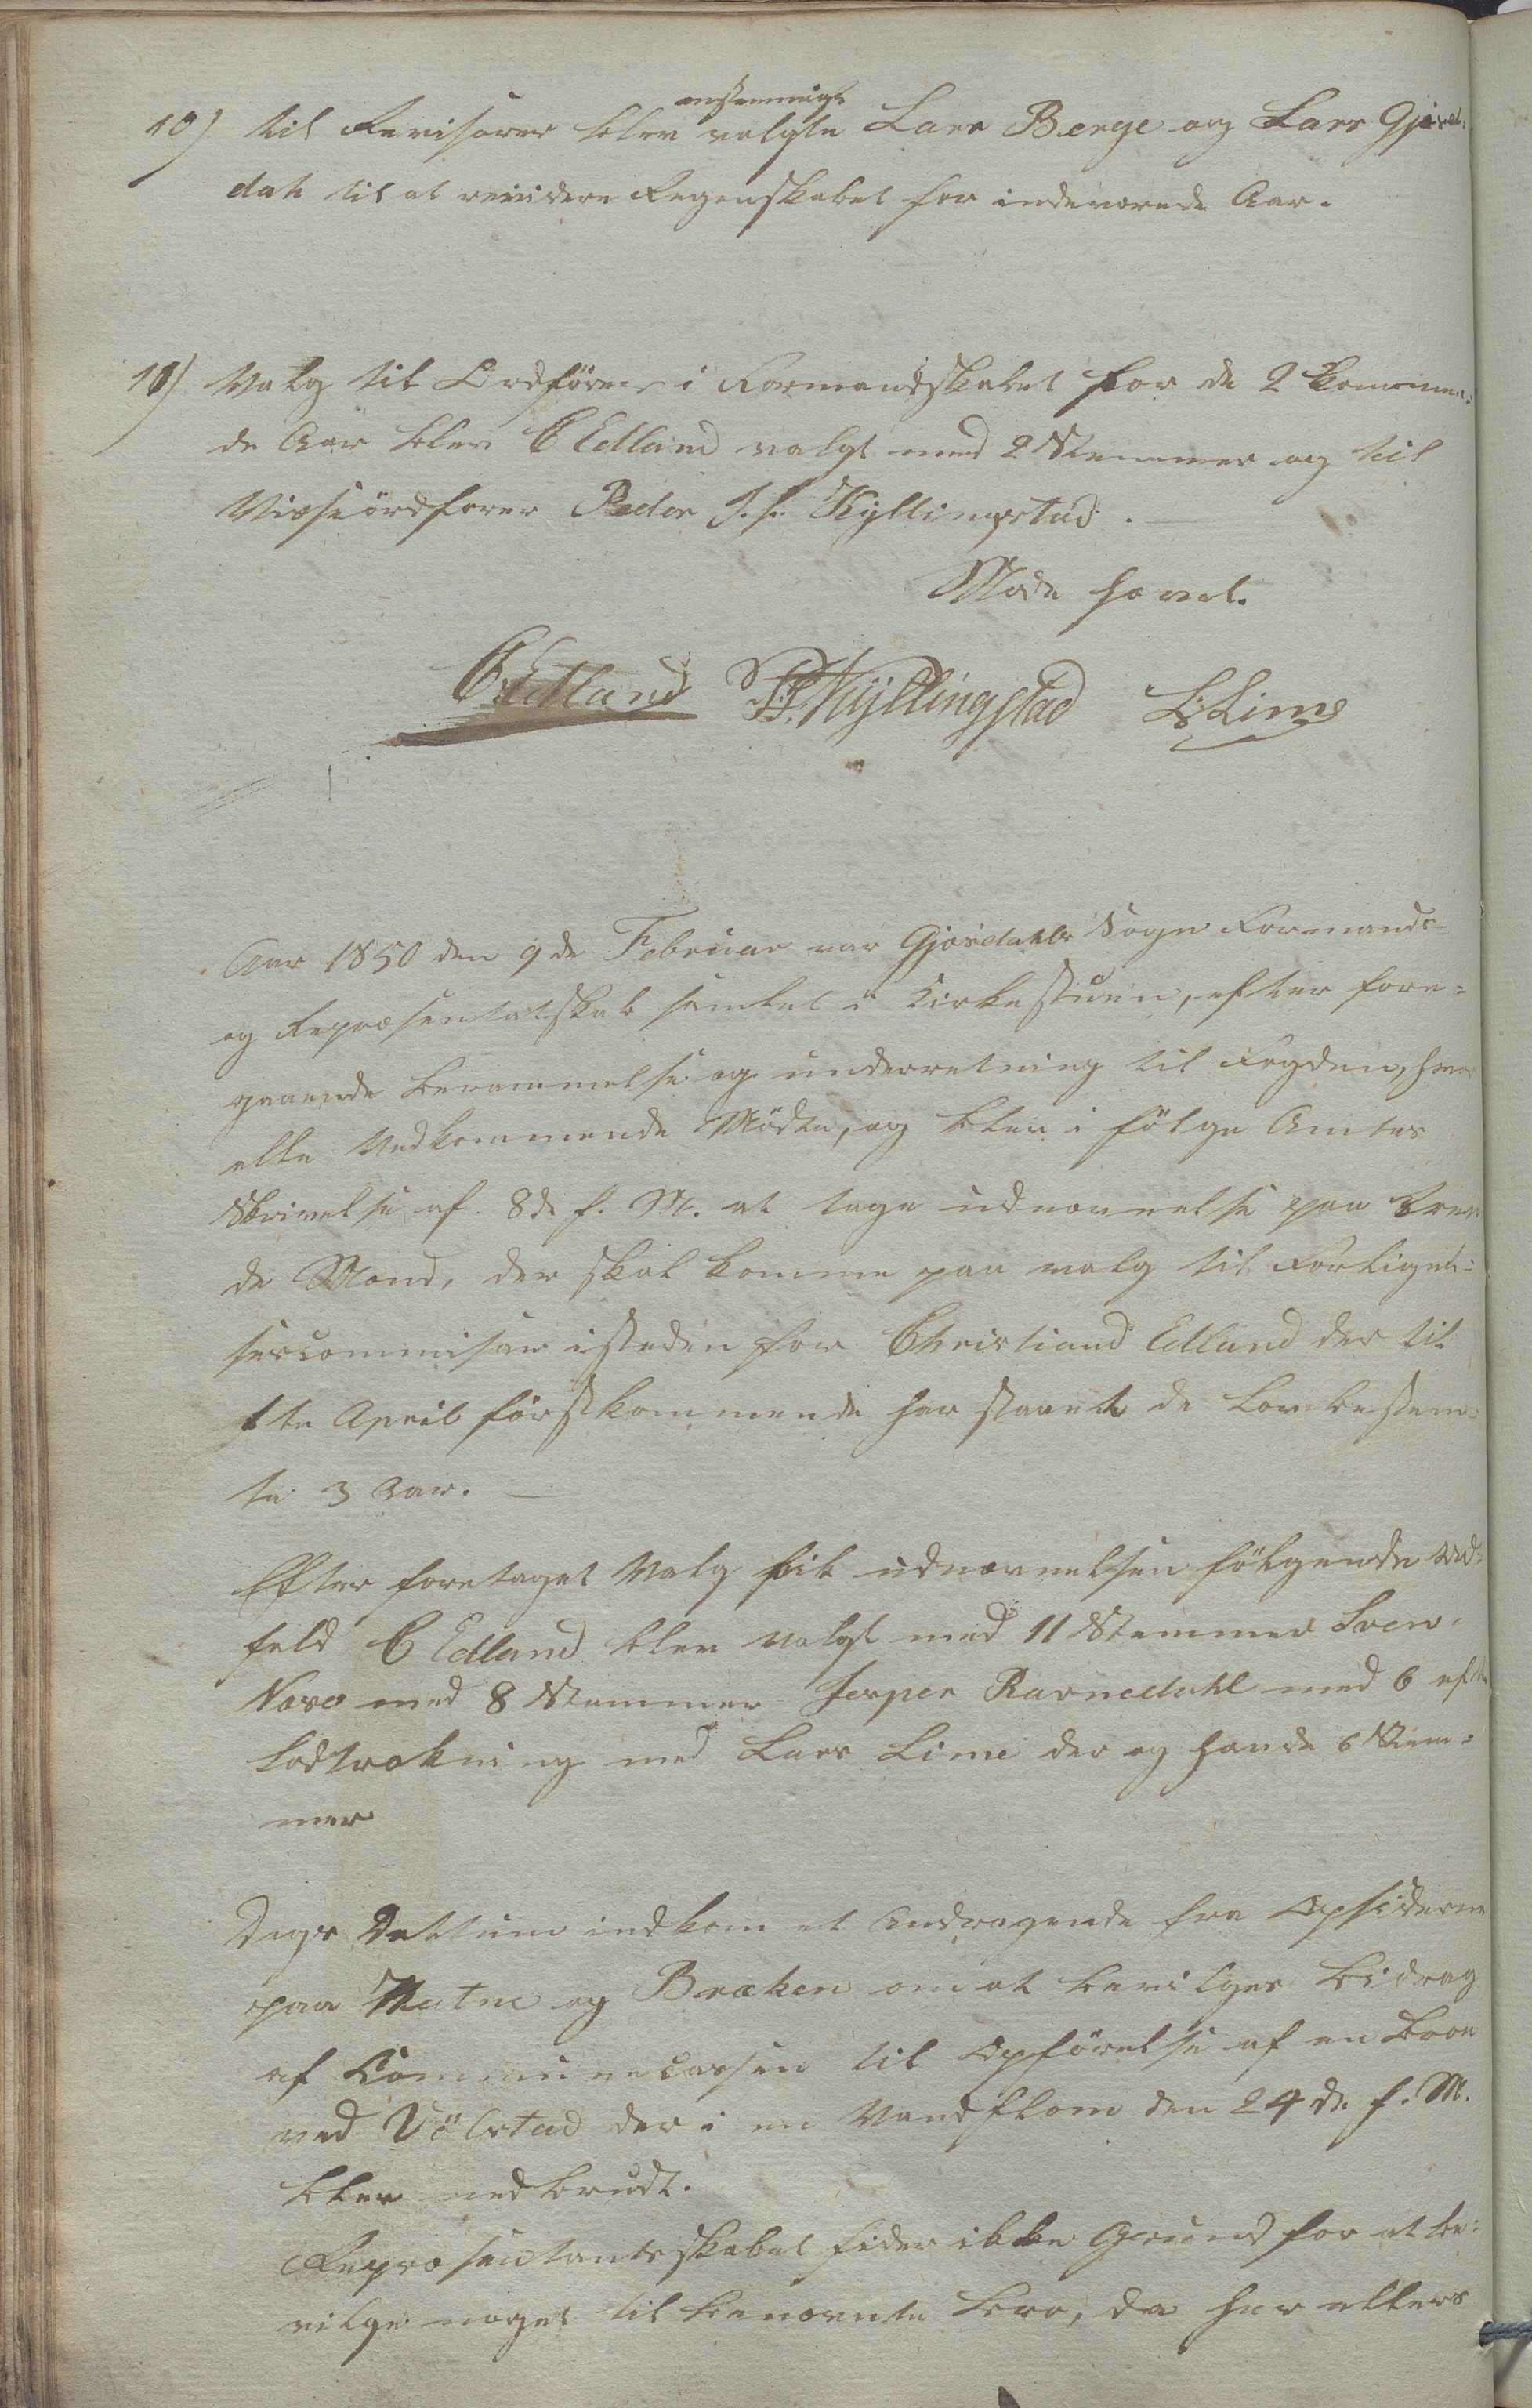 enstemmigt
10) til Revisorer blev valgte Lars Berge og Lars Gjes-
dah til at revidere Regenskabet for indeværende Aar.
11) Valg til Ordförer i Formandskabet for de 2 kommen-
de Aar blev C Edland valgt med 2 Stemmer og til
Viseördforer Peder J. s. Kyllingstad. —
Möde hævet.
C Edland P.J.Kyllingstad L: Lima
Aar 1850 den 9de Februar var Gjæsdahls Sogn Formands-
og Repræsentatskab samlet i Kirkestuen, efter fore-
gaaende berammelse og underretning til Fogden, hvor
alle Vedkommende Mödte, og blev i fölge Amtes
Skrivelse af 8de f. M. at tage udnævnelse paa tren-
de Mænd, der skal komme paa valg til Forligel-
sescommisær isteden for Christiand Edland der til
1te April förstkommende har staaet de Lovbestem-
te 3 Aar. —
Efter foretaget Valg fik udnævnelsen fölgende Ud-
feld C Edland blev valgt med 11 Stemmer Sven
Næse med 8 Stemmer Jesper Ravnedahl med 6 efter
Lodtrækning med Lars Lima der og havde 6 Stem-
mer
Dags Dattum indkom et Andragende fra Opsiderne
paa Matne og Bræken om at bevilges bidrag
af Communecassen til Opförelse af en Broe
ved Völstad der i en Vandflom den 24de f. M.
blev nedbrudt.
Repræsentantskabet fider ikke Grund for at be-
vilge noget til benævnte Bro, da her ellers